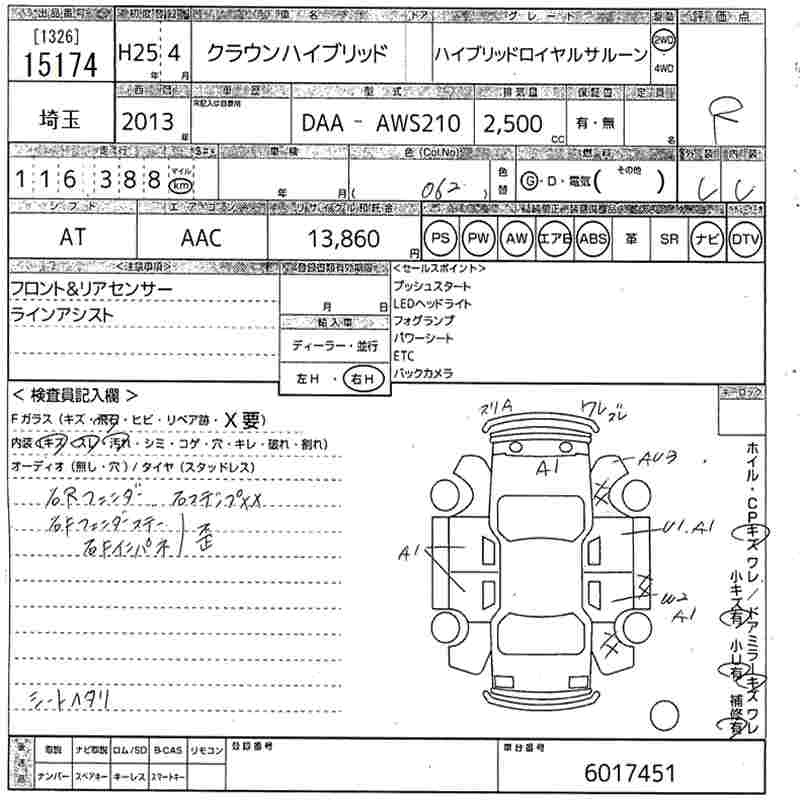 出品番号 初度登録 車名 ドア グレード 駆動 評価点
[1326]
15174 H25年 4月 クラウンハイブリッド ハイブリッドロイヤルサルーン 2WD・4WD R
西暦 車歴 型式 排気量 保証書 定員
未記入は自家用
埼玉 2013年 DAA - AWS210 2,500cc 有・無 名
走行 車検 色(Col.No) 燃料 外装 内装
116,388 マイル km 年 月 ( 062 ) 色替 G・D・電気( その他 ) C C
シフト エアコン リサイクル預託金
AT AAC 13,860円 PS PW AW エアB ABS 革 SR ナビ DTV
<注意事項> 登録書類有効期限 <セールスポイント>
フロント&リアセンサー
ラインアシスト
月 日
輸入車
ディーラー・並行
左H・右H
プッシュスタート
LEDヘッドライト
フォグランプ
パワーシート
ETC
バックカメラ
< 検査員記入欄 >
Fガラス(キズ・飛石・ヒビ・リペア跡・X要)
内装(キズ・スレ・汚れ・シミ・コゲ・穴・キレ・破れ・割れ)
オーディオ(無し・穴)/タイヤ(スタッドレス)
右Rフェンダー 右ステップXX
右Fフェンダーステー
右Fインパネ 歪
シートヘタリ
スリA ワレズレ
A1 AU3
A1 U1.A1
U2
A1
キーロック
ホイル・CPキズワレ/ドアミラーキズワレ
小キズ有 小U有 補修有
後送品 取説 ナビ取説 ロム/SD B-CAS リモコン 登録番号 車台番号
ナンバー スペアキー キーレス スマートキー
6017451